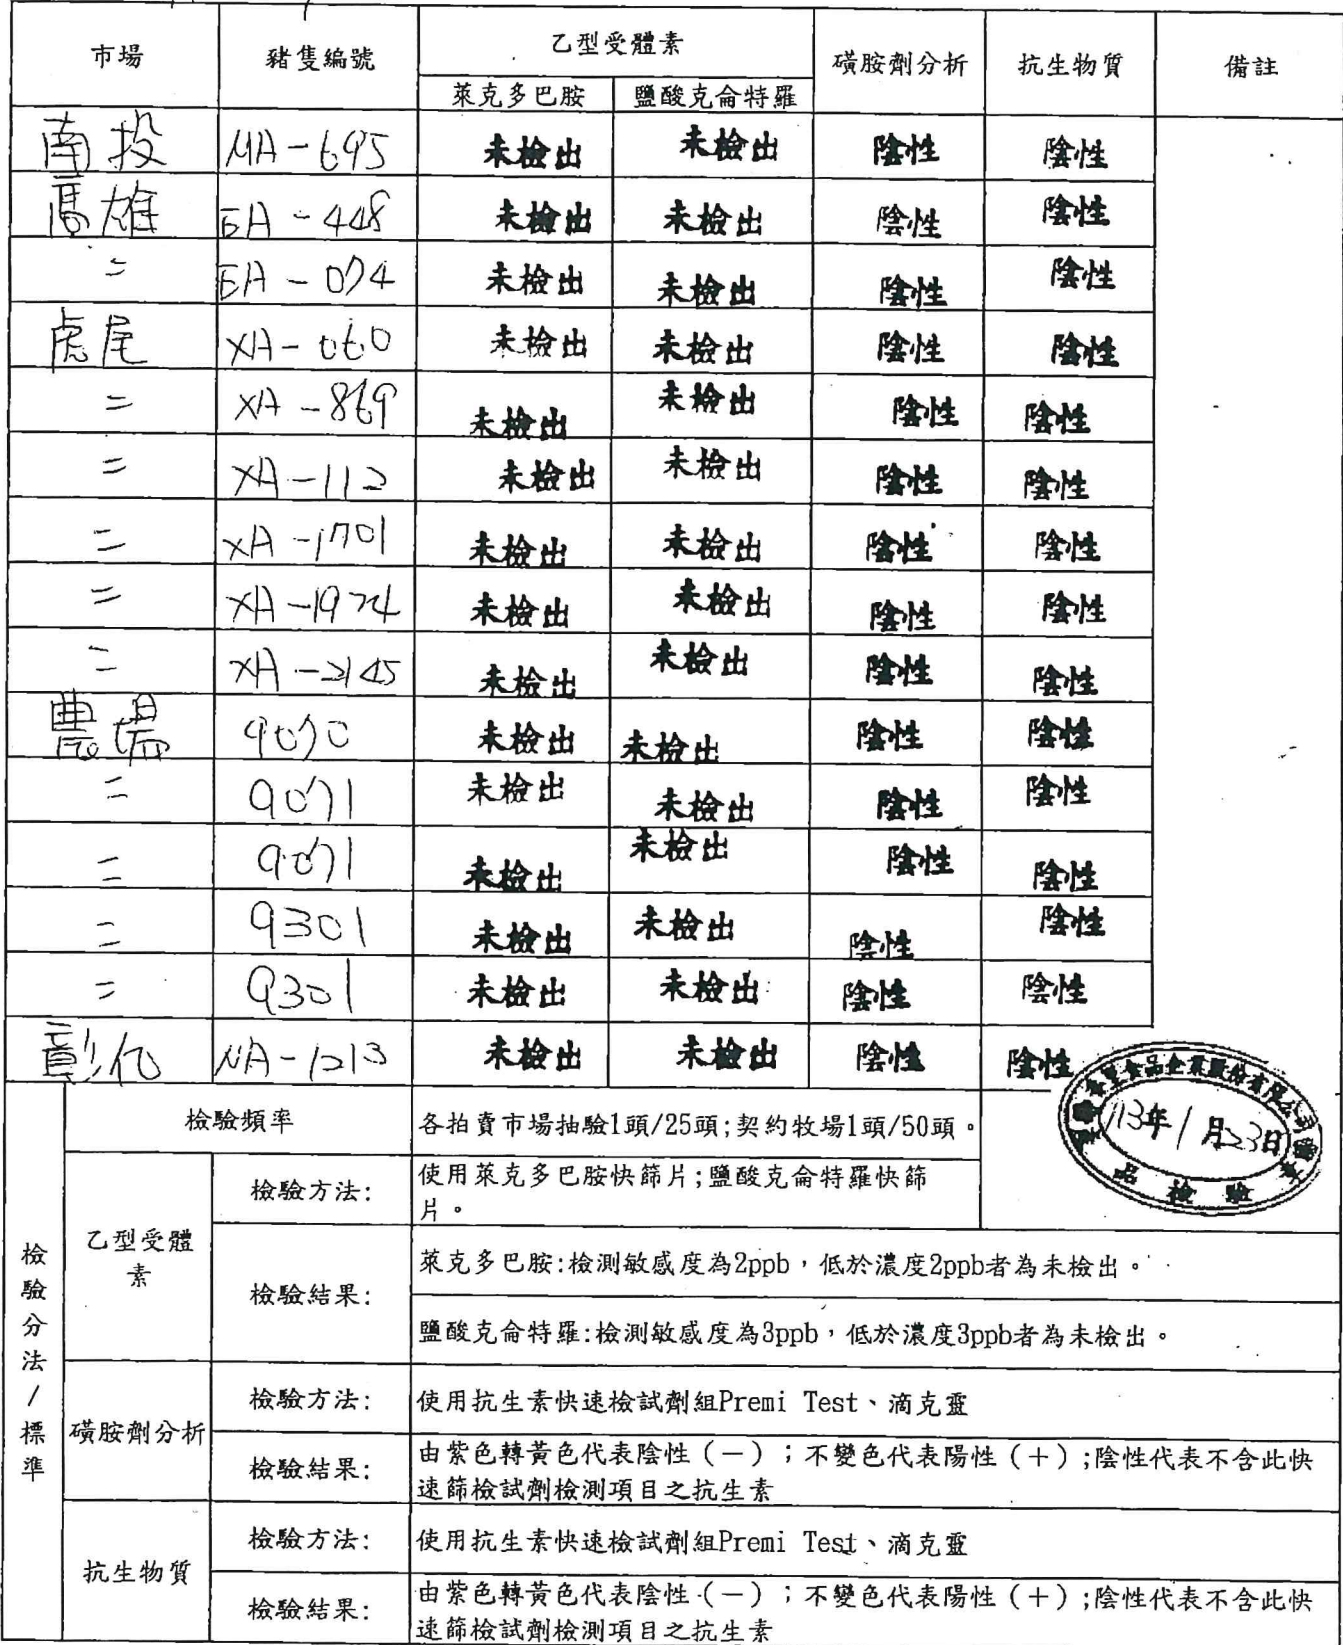 市場 豬隻編號 乙型受體素 磺胺劑分析 抗生物質 備註
萊克多巴胺 鹽酸克侖特羅
南投 MA-695 未檢出 未檢出 陰性 陰性
高雄 EA-448 未檢出 未檢出 陰性 陰性
〃 EA-074 未檢出 未檢出 陰性 陰性
虎尾 XA-060 未檢出 未檢出 陰性 陰性
〃 XA-869 未檢出 未檢出 陰性 陰性
〃 XA-112 未檢出 未檢出 陰性 陰性
〃 XA-1701 未檢出 未檢出 陰性 陰性
〃 XA-1974 未檢出 未檢出 陰性 陰性
〃 XA-2145 未檢出 未檢出 陰性 陰性
農場 9070 未檢出 未檢出 陰性 陰性
〃 9071 未檢出 未檢出 陰性 陰性
〃 9071 未檢出 未檢出 陰性 陰性
〃 9301 未檢出 未檢出 陰性 陰性
〃 9301 未檢出 未檢出 陰性 陰性
彰化 NA-1213 未檢出 未檢出 陰性 陰性
食品企業股份有限公司
113年1月23日
品檢驗
檢驗分法/標準
檢驗頻率 各拍賣市場抽驗1頭/25頭;契約牧場1頭/50頭。
乙型受體素
檢驗方法: 使用萊克多巴胺快篩片;鹽酸克侖特羅快篩
片。
檢驗結果: 萊克多巴胺:檢測敏感度為2ppb，低於濃度2ppb者為未檢出。
鹽酸克侖特羅:檢測敏感度為3ppb，低於濃度3ppb者為未檢出。
磺胺劑分析
檢驗方法: 使用抗生素快速檢試劑組Premi Test、滴克靈
檢驗結果: 由紫色轉黃色代表陰性（－）；不變色代表陽性（＋）;陰性代表不含此快
速篩檢試劑檢測項目之抗生素
抗生物質
檢驗方法: 使用抗生素快速檢試劑組Premi Test、滴克靈
檢驗結果: 由紫色轉黃色代表陰性（－）；不變色代表陽性（＋）;陰性代表不含此快
速篩檢試劑檢測項目之抗生素